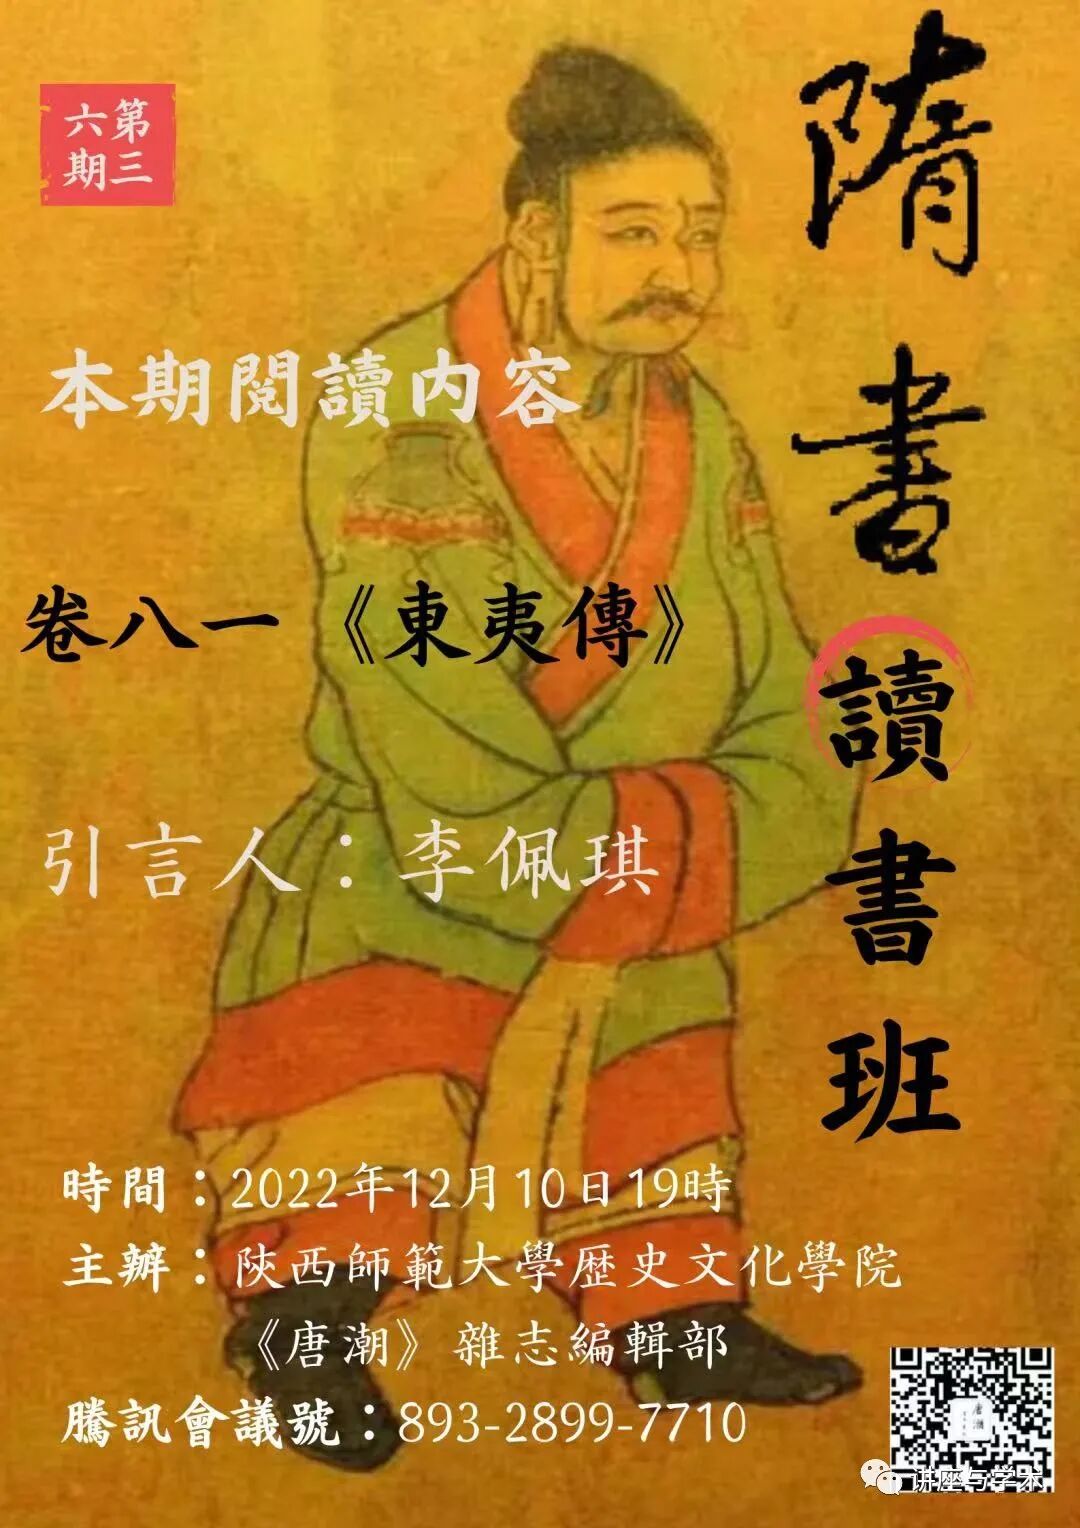 第三
六期
隋書讀書班
本期閱讀内容
卷八一《東夷傳》
引言人：李佩琪
時間：2022年12月10日19時
主辦：陝西師範大學歷史文化學院
《唐潮》雜志編輯部
騰訊會議號：893-2899-7710
唐潮
讲座与学术